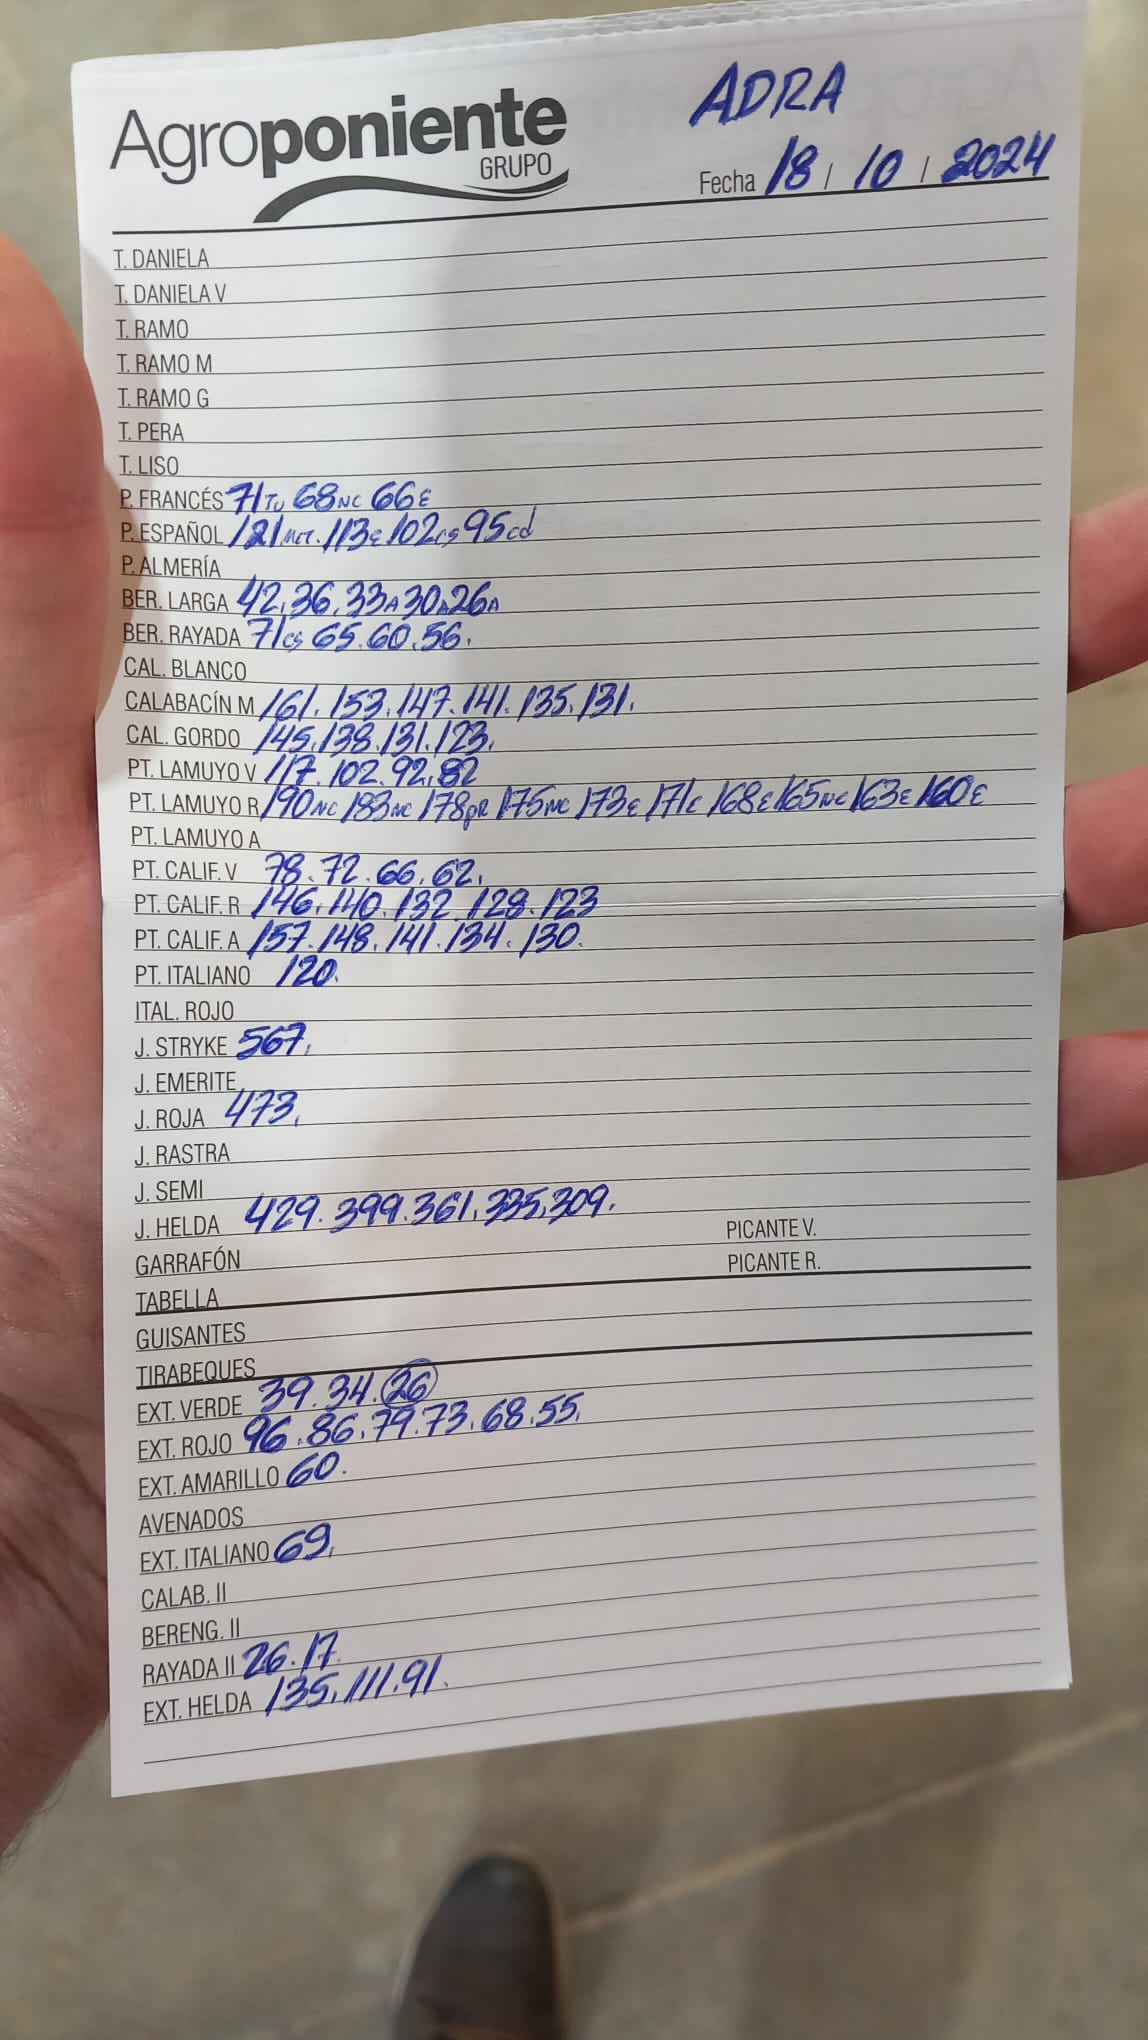 Agroponiente
GRUPO
ADRA
Fecha 18 / 10 / 2024
T. DANIELA
T. DANIELA V
T. RAMO
T. RAMO M
T. RAMO G
T. PERA
T. LISO
P. FRANCÉS 71TU 68NC 66E
P. ESPAÑOL 121MCT. 113E 102CS 95Cd
P. ALMERÍA
BER. LARGA 42.36.33A 30A 26A
BER. RAYADA 71CS 65.60.56.
CAL. BLANCO
CALABACÍN M 161.153.147.141.135.131.
CAL. GORDO 145.138.131.123.
PT. LAMUYO V 117.102.92.82
PT. LAMUYO R 190NC 183NC 178PR 175NC 173E 171E 168E 165NC 163E 160E
PT. LAMUYO A
PT. CALIF. V 78.72.66.62.
PT. CALIF. R 146.140.132.128.123
PT. CALIF. A 157.148.141.134.130.
PT. ITALIANO 120.
ITAL. ROJO
J. STRYKE 567.
J. EMERITE
J. ROJA 473.
J. RASTRA
J. SEMI
J. HELDA 429.399.361.335.309.
GARRAFÓN PICANTE V.
TABELLA PICANTE R.
GUISANTES
TIRABEQUES
EXT. VERDE 39.34.26
EXT. ROJO 96.86.79.73.68.55.
EXT. AMARILLO 60.
AVENADOS
EXT. ITALIANO 69.
CALAB. II
BERENG. II
RAYADA II 26.17.
EXT. HELDA 135.111.91.